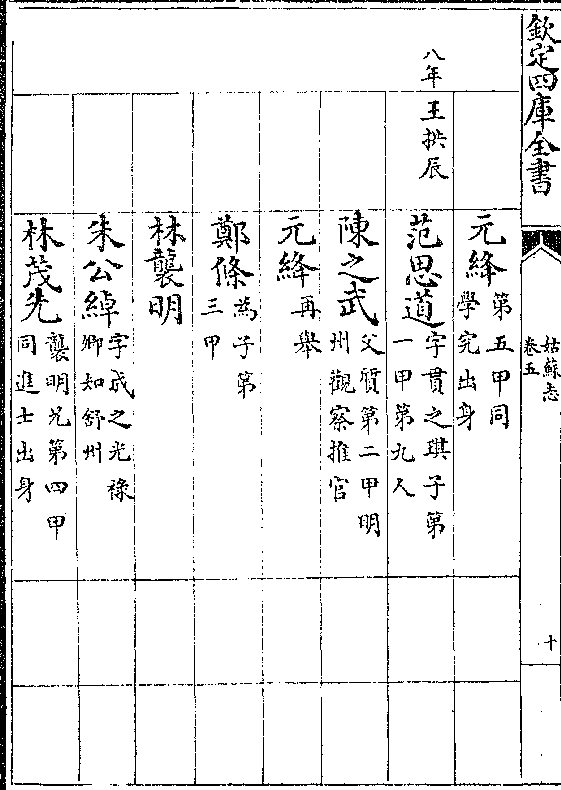 欽定四庫全書
姑蘇志
卷五
十
元絳
第五甲同
學究出身
八年
王拱辰
范思道
字貫之琪子第
一甲第九人
陳之武
父質第二甲明
州觀察推官
元絳
再舉
鄭條
為子第
三甲
林襲明
朱公綽
字成之光祿
卿知舒州
林茂先
襲明兄第四甲
同進士出身